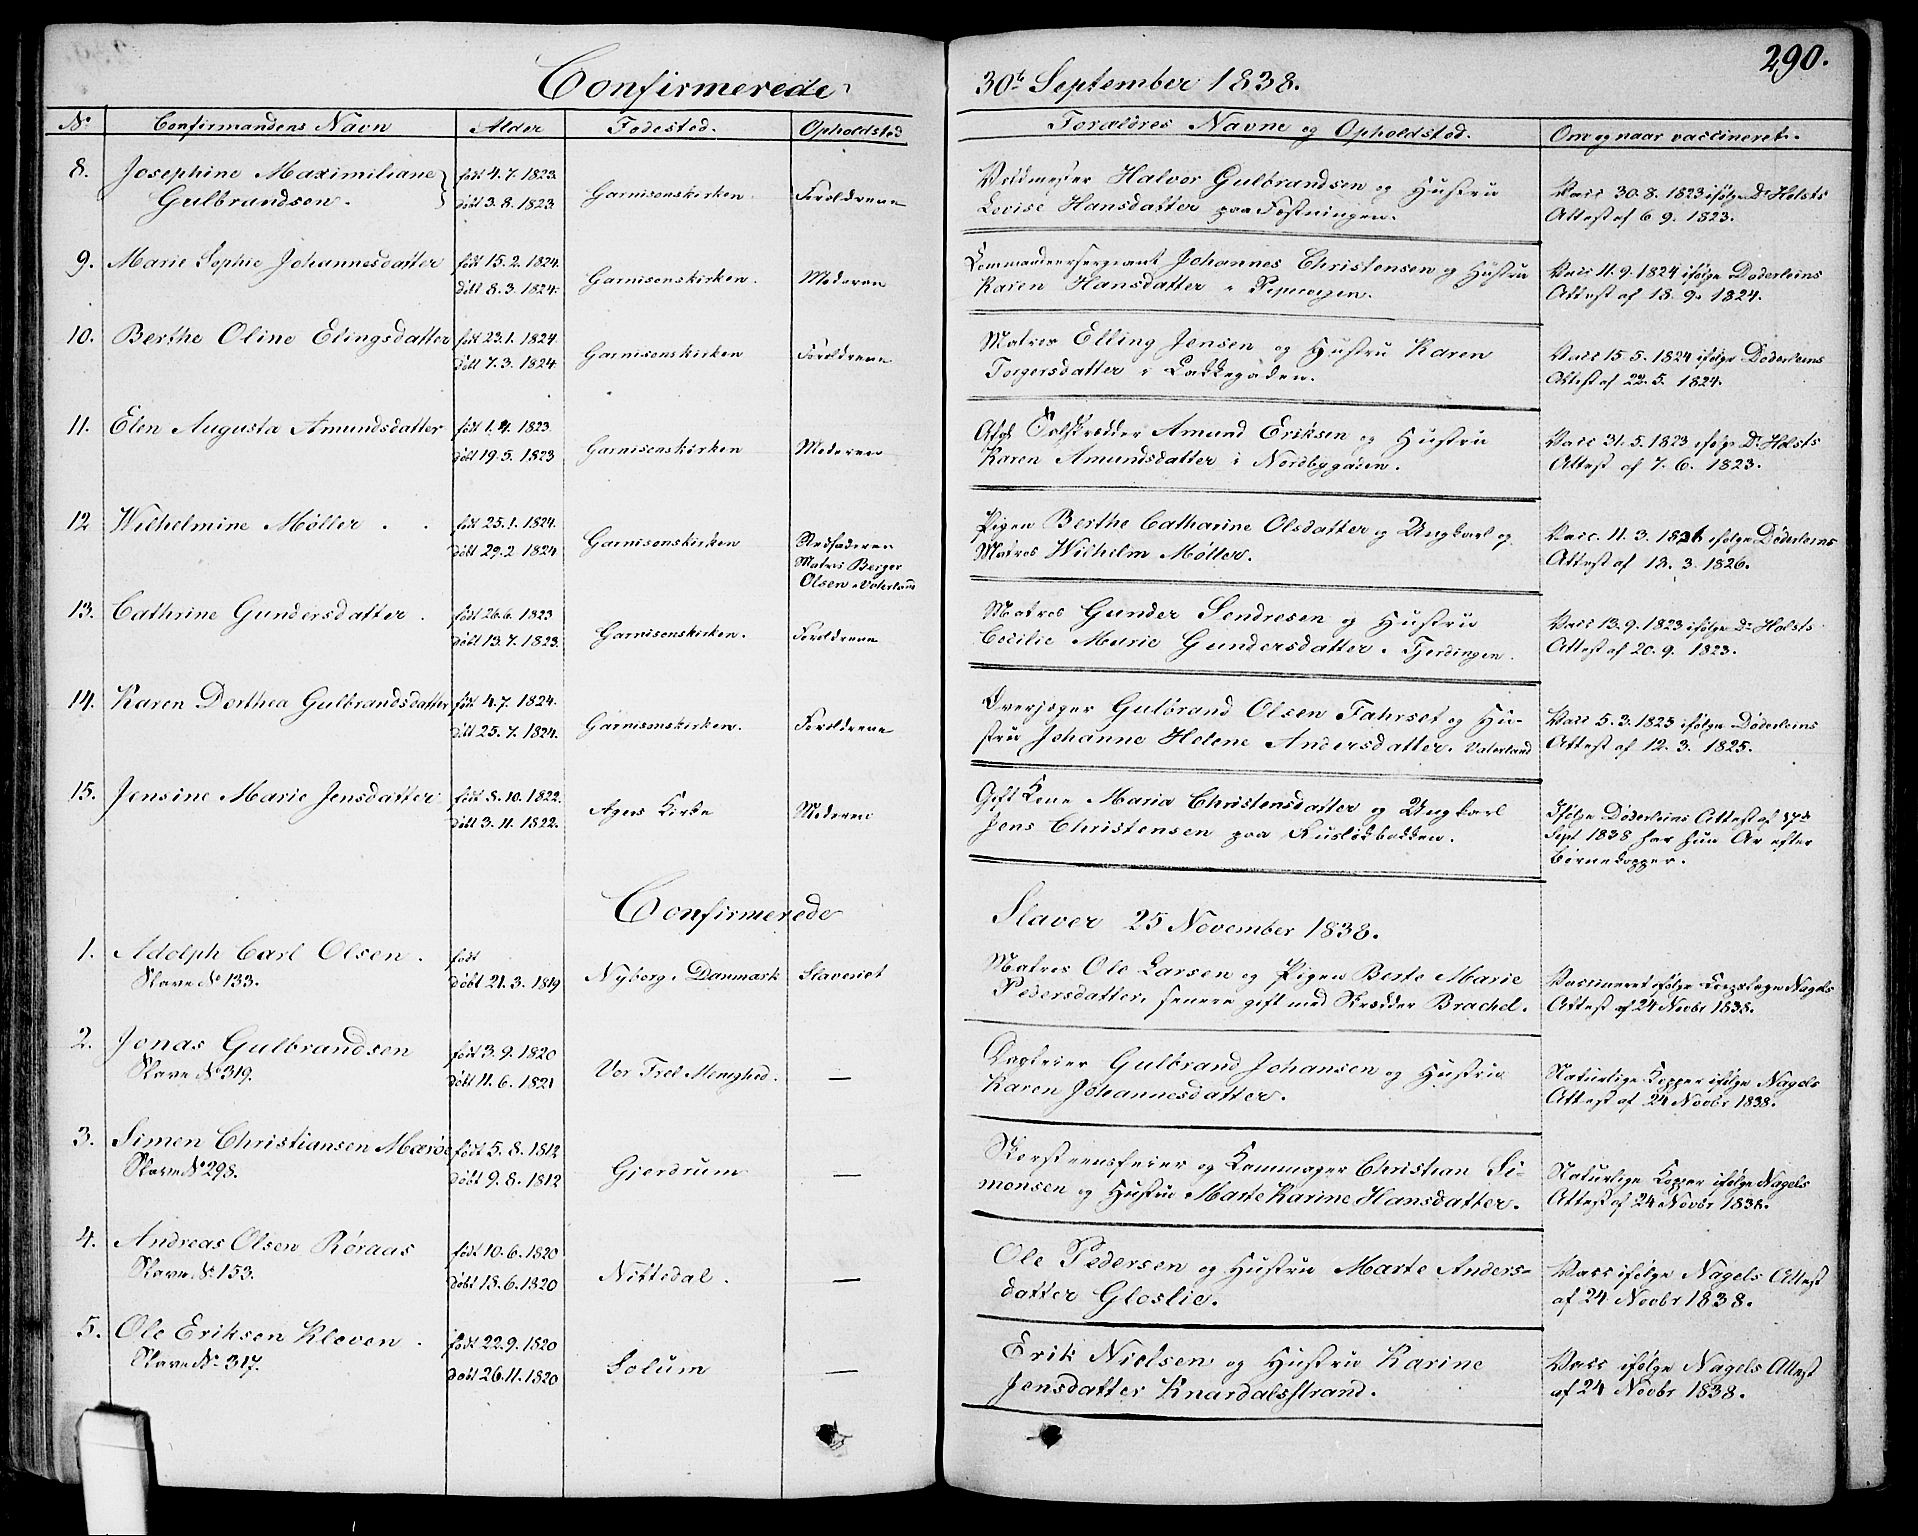 290.
Confirmerede
30te September 1838.
No Confirmandens Navn Alder Fødested. Opholdsted Forældres Navne og Opholdsted. Om og naar vaccineret.
8. Josephine Maximiliane født 4.7.1823.
Gulbrandsen. døbt 3.8.1823. Garnisonskirken. Forældrene
Voldmester Halvor Gulbrandsen og Hustru
Lovise Hansdatter paa Fæstningen.
Vacc 30.8.1823 ifølge Dr Holsts
Attest af 6.9.1823.
9. Marie Sophie Johannesdatter født 15.2.1824.
døbt 8.3.1824. Garnisonskirken. Moderen
Commandeersergeant Johannes Christensen og Hustru
Karen Hansdatter i Pipervigen.
Vacc 11.9.1824 ifølge Døderleins
Attest af 18.9.1824.
10. Berthe Oline Elingsdatter født 23.1.1824.
døbt 7.3.1824. Garnisonskirken Forældrene
Matros Elling Jensen og Hustru Karen
Torgersdatter i Lakkegaden.
Vacc 15.5.1824 ifølge Døderleins
Attest af 22.5.1824.
11. Elen Augusta Amundsdatter født 1.4.1823.
døbt 19.5.1823 Garnisonskirken Moderen
Amund Eriksen og Hustru
Karen Amundsdatter i Nordbygaden.
Vacc 31.5.1823 ifølge Dr Holsts
Attest af 7.6.1823.
12 Wilhelmine Møller . . født 25.1.1824.
døbt 29.2.1824 Garnisonskirken
Matros Berger
Olsen i Vaterland
Pigen Berthe Catharine Olsdatter og Ungkarl og
Matros Wilhelm Møller.
Vacc. 11.3.1826 ifølge Døderleins
Attest af 12.3.1826.
13. Cathrine Gundersdatter . født 26.6.1823
døbt 13.7.1823. Garnisonskirken. Forældrene
Matros Gunder Sendresen og Hustru
Cecilie Marie Gundersdatter i Fjerdingen.
Vacc 13.9.1823 ifølge Dr Holsts
Attest af 20.9.1823.
14. Karen Dorthea Gulbrandsdatter født 4.7.1824.
døbt 25.7.1824. Garnisonskirken. Forældrene
Overjæger Gulbrand Olsen Fahrset og Hu-
stru Johanne Helene Andersdatter. Vaterland
Vacc 5.3.1825 ifølge Døderleins
Attest af 12.3.1825.
15. Jensine Marie Jensdatter født 8.10.1822.
døbt 3.11.1822. Agers Kirke Moderene
Gift Kone Maria Christensdatter og Ungkarl
Jens Christensen paa Rusløkbakken.
Ifølge Døderleins Attest af 17de
Sept 1838 har hun Ar efter
Børnekopper.
Confirmerede
Slaver 25 November 1838.
1. Adolph Carl Olsen. født
Slave No 133. døbt 21.3.1819 Nyborg i Danmark Slaveriet
Matros Ole Larsen og Pigen Berte Marie
Pedersdatter, senere gift med Skrædder Brachel.
Vaccineret ifølge Corpslæge Nagels
Attest af 24 Novbr 1838.
2. Jonas Gulbrandsen født 3.9.1820
Slave No 319. døbt 11.6.1821 Vor Frels Menighed. —
Gulbrand Johansen og Hustru
Karen Johannesdatter.
Naturlige Kopper ifølge Nagels
Attest af 24 Novbr 1838.
3. Simen Christiansen Mærøe født 5.8.1812
Slave No 298. døbt 9.8.1812 Gjerdrum —
Skorsteensfeier og Kammager Christian Si-
monsen og Hustru Marte Karine Hansdatter.
Naturlige Kopper ifølge Nagels
Attest af 24 Novbr 1838.
4. Andreas Olsen Røraas født 10.6.1820
Slave No 153. døbt 18.6.1820 Nittedal. —
Ole Pedersen og Hustru Marte Anders-
datter Gloslie.
Vacc ifølge Nagels Attest
af 24 Novbr 1838.
5. Ole Eriksen Kleven . født 22.9.1820
Slave No 317. døbt 26.11.1820 Solum —
Erik Nielsen og Hustru Karine
Jensdatter Knardalsstrand.
Vacc ifølge Nagels Attest
af 24 Novbr 1838.